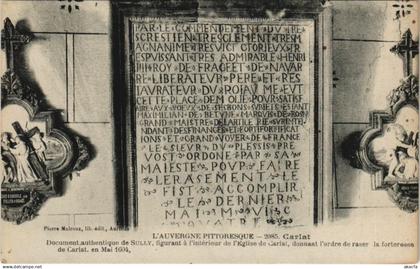 PAR LE COMMENDEMENT DV TRE
SCRESTIEN TRESCLEMENT TRESM
AGNANIME TRESVICTORIEVX TR
ESPVISSANT TRES ADMIRABLE HENRI
IIII ROY DE FRANCE ET DE NAVAR
RE LIBERATEVR PERE ET RES
TAVRATEVR DV ROIAVME EVT
CETTE PLACE DEMOLIE POVR SATISF
AIRE AVX DE
MAXIMILIAN DE BETVNE MARQVIS DE ROSN
GRAND MAISTRE DE LARTILERIE SVRINTEN
DANT DES FINANCES ET FORTIFICAT
IONS ET GRAND VOYER DE FRANCE
LE SIEVR DV PLESSIS PRE
VOST ORDONE PAR SA
MAIESTE POVR FAIRE
LE RASEMENT LE
FIST ACCOMPLIR
LE DERNIER
MAI M VIC
QVATRE
Pierre Malroux, lib. édit., Aurillac
L'AUVERGNE PITTORESQUE — 2085. Carlat
Document authentique de SULLY, figurant à l'intérieur de l'Eglise de Carlat, donnant l'ordre de raser la forteresse
de Carlat, en Mai 1604.